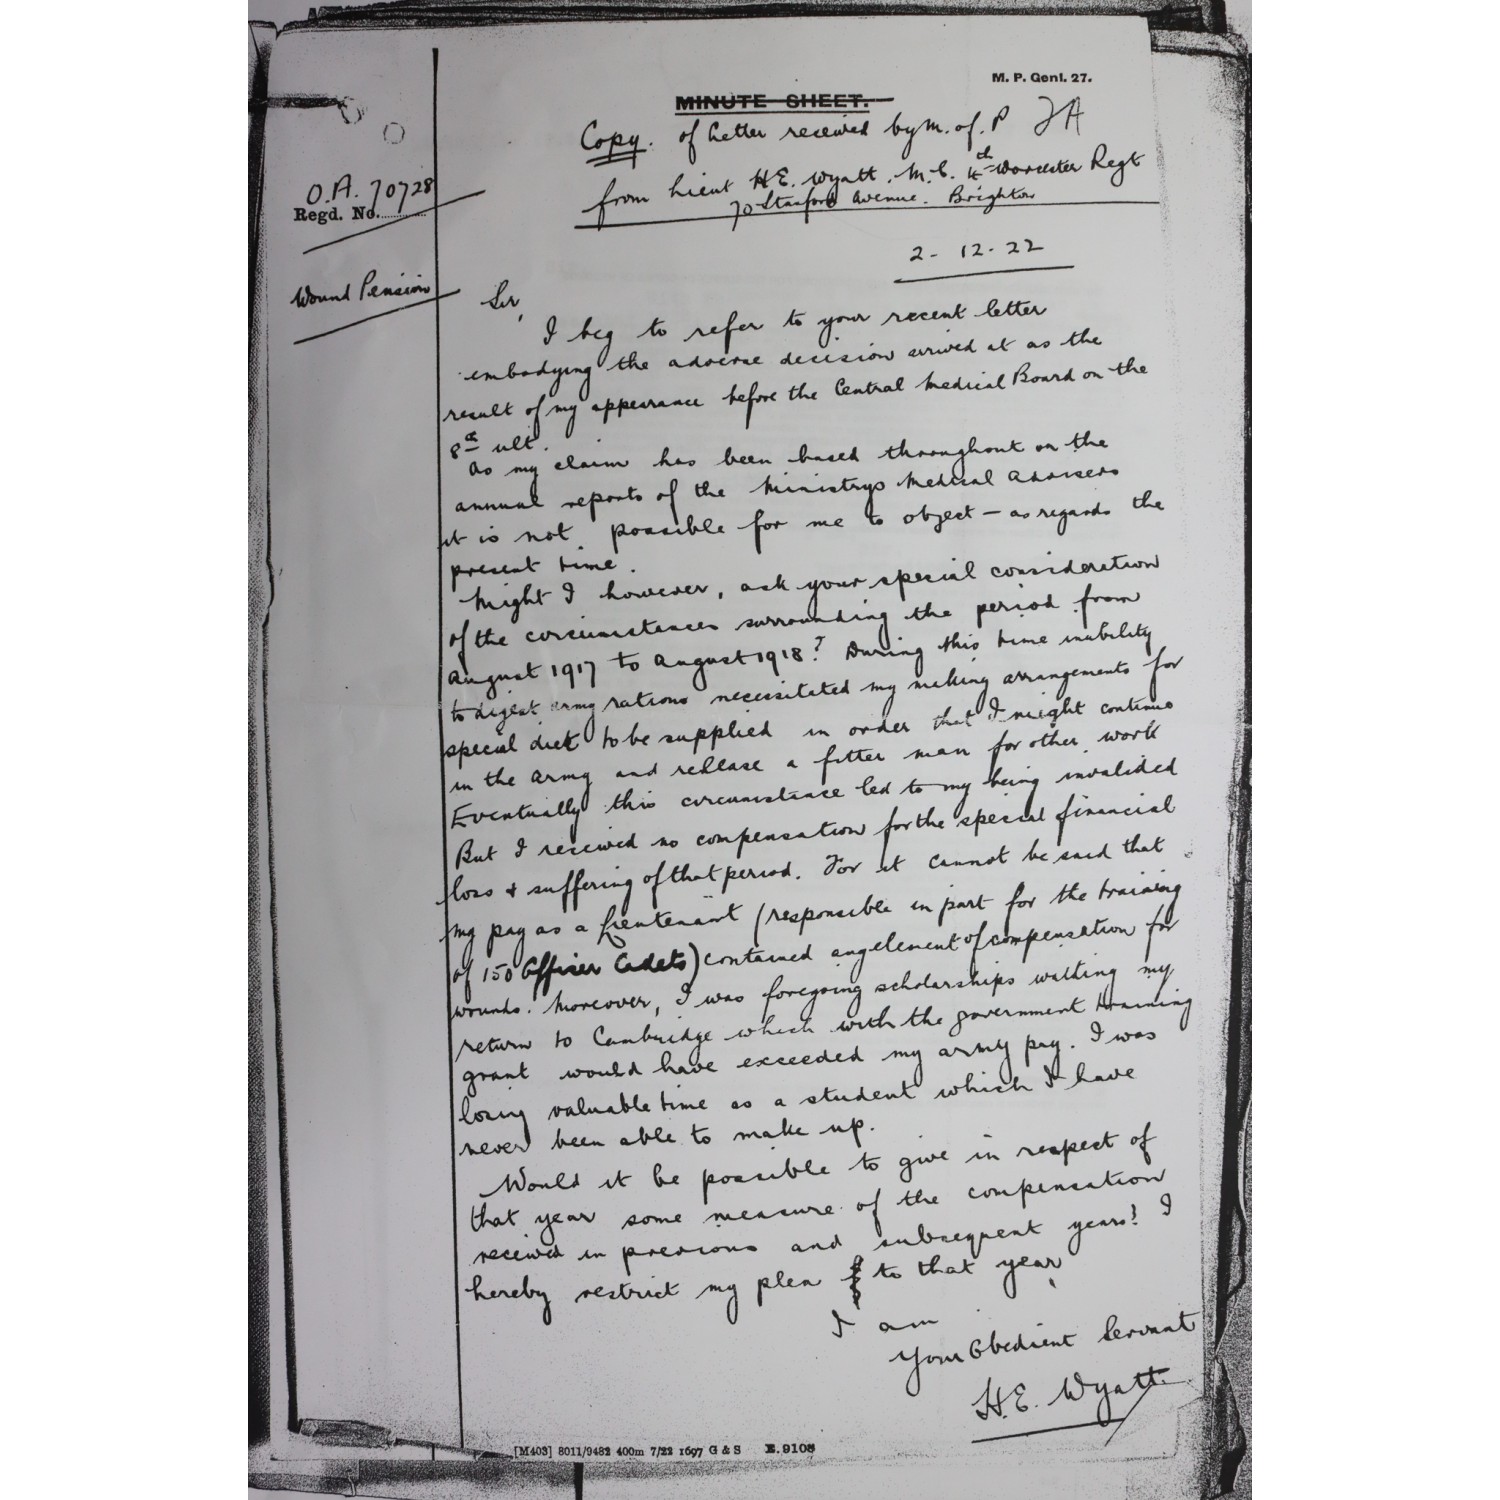 M. P. Genl. 27.
MINUTE SHEET.
Copy. of letter received by M. of. P JA
from Lieut H E. Wyatt. M. C. 4th Worcester Regt
70 Stanford Avenue. Brighton
O.A. 70728
Regd. No.
2 - 12 - 22
Wound Pension
Sir,
I beg to refer to your recent letter
embodying the adverse decision arrived at as the
result of my appearance before the Central Medical Board on the
8th ult.
As my claim has been based throughout on the
annual reports of the Ministrys Medical Advisers
it is not possible for me to object - as regards the
present time.
Might I however, ask your special consideration
of the circumstances surrounding the period from
August 1917 to August 1918? During this time inability
to digest army rations necessitated my making arrangements for
special diet to be supplied in order that I might continue
in the army and release a fitter man for other work
Eventually this circumstance led to my being invalided
But I received no compensation for the special financial
loss & suffering of that period. For it cannot be said that
my pay as a Lieutenant (responsible in part for the training
of 150 Officer Cadets) contained any element of compensation for
wounds. Moreover, I was foregoing scholarships waiting my
return to Cambridge which with the government training
grant would have exceeded my army pay. I was
losing valuable time as a student which I have
never been able to make up.
Would it be possible to give in respect of
that year some measure of the compensation
received in previous and subsequent years? I
hereby restrict my plea to that year
I am
Your Obedient Servant
H.E. Wyatt.
[M403] 8011/9482 400m 7/22 1697 G & S E.9108